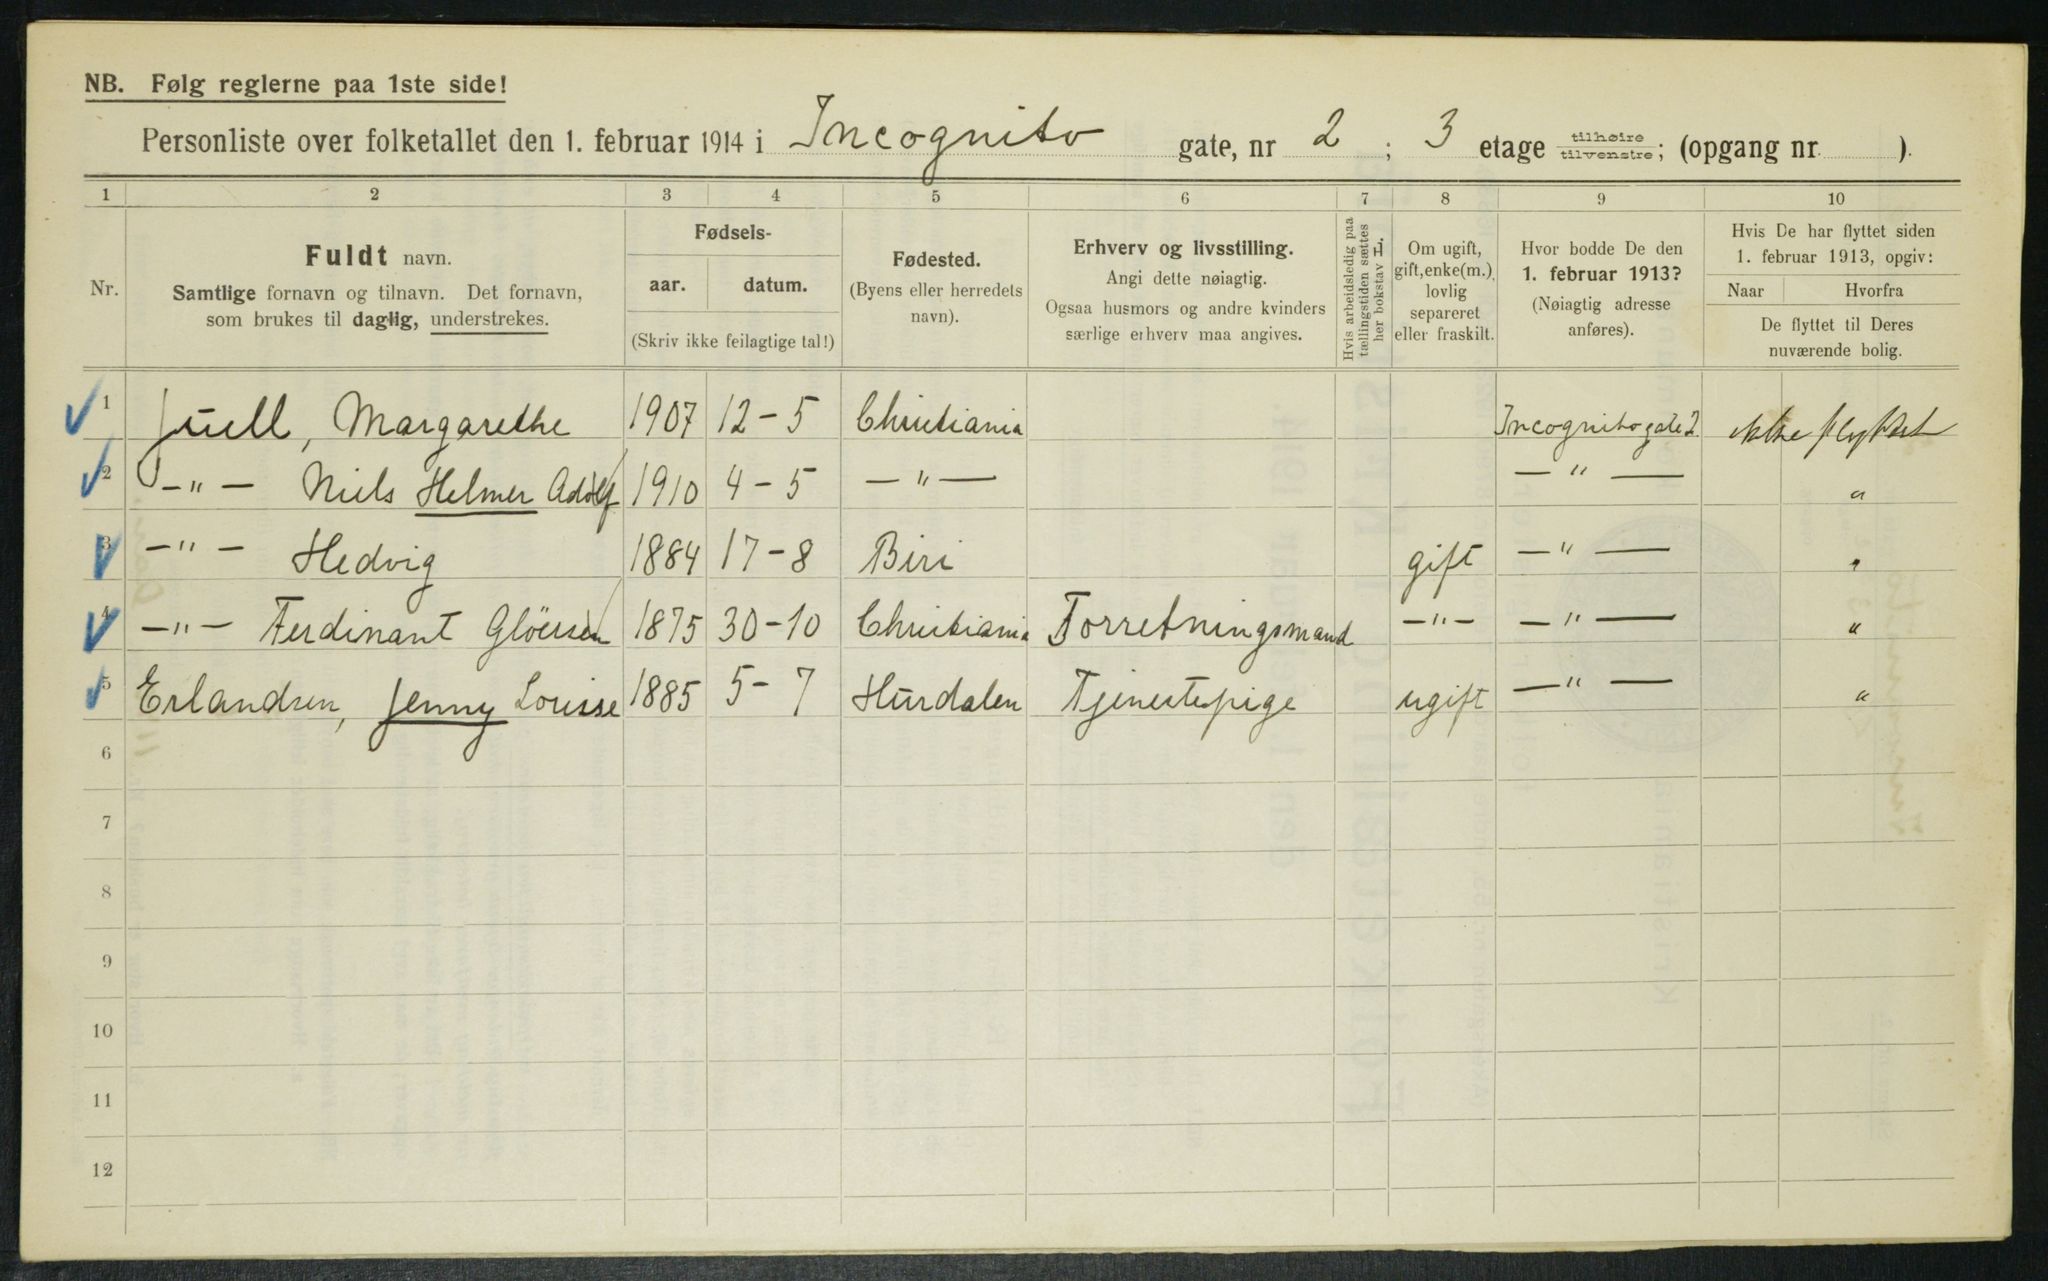 NB. Følg reglerne paa 1ste side!
Personliste over folketallet den 1. februar 1914 i Incognito gate, nr 2 ; 3 etage tilhøire tilvenstre; (opgang nr. ).
1 2 3 4 5 6 7 8 9 10
Nr.
Fuldt navn.
Samtlige fornavn og tilnavn. Det fornavn,
som brukes til daglig, understrekes.
Fødsels-
aar. datum.
(Skriv ikke feilagtige tal!)
Fødested.
(Byens eller herredets
navn).
Erhverv og livsstilling.
Angi dette nøiagtig.
Ogsaa husmors og andre kvinders
særlige erhverv maa angives.
Hvis arbeidsledig paa
tællingstiden sættes
her bokstav L.
Om ugift,
gift, enke(m.),
lovlig
separeret
eller fraskilt.
Hvor bodde De den
1. februar 1913?
(Nøiagtig adresse
anføres).
Hvis De har flyttet siden
1. februar 1913, opgiv:
Naar Hvorfra
De flyttet til Deres
nuværende bolig.
1 Juell, Margarethe 1907 12-5 Christiania Incognitogate 2 ikke flyttet
2 -"- Niels Helmer Adolf 1910 4-5 -"- -"- "
3 -"- Hedvig 1884 17-8 Biri gift -"- "
4 -"- Ferdinant Glöersen 1875 30-10 Christiania Forretningsmand -"- -"- "
5 Erlandsen, Jenny Lousse 1885 5-7 Hurdalen Tjenestepige ugift -"- "
6
7
8
9
10
11
12